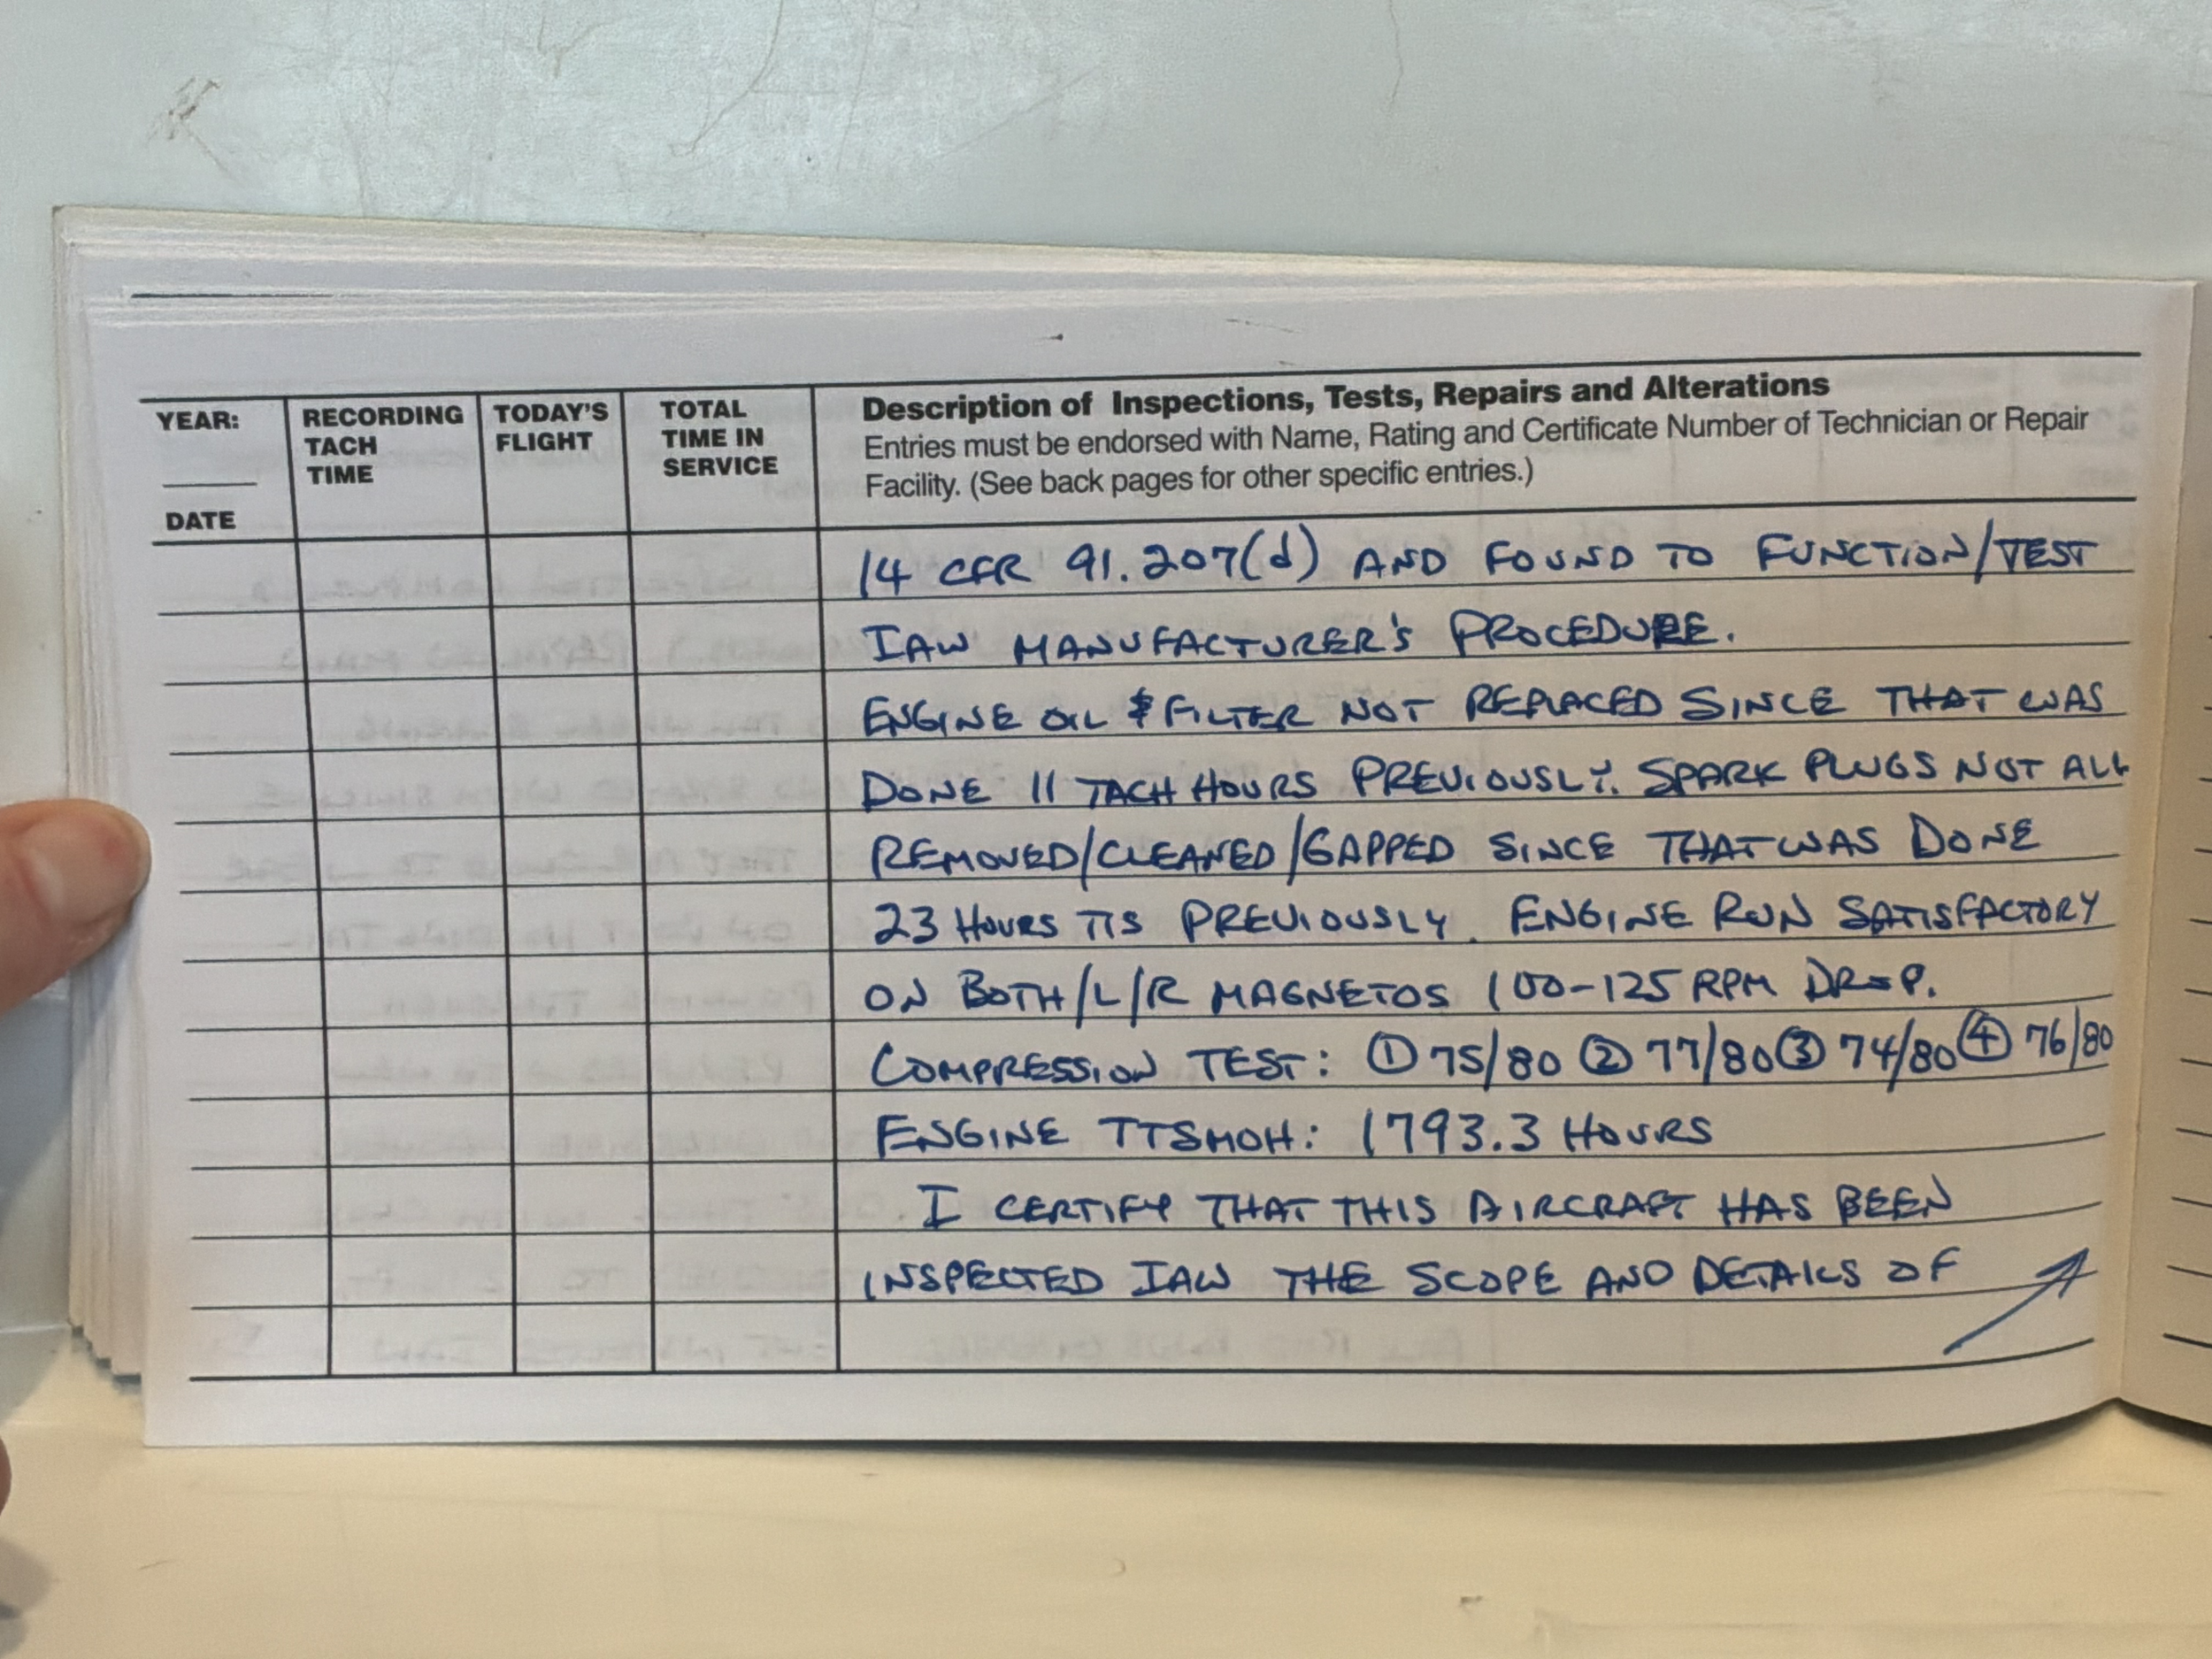 YEAR:
DATE
RECORDING
TACH
TIME
TODAY'S
FLIGHT
TOTAL
TIME IN
SERVICE
Description of Inspections, Tests, Repairs and Alterations
Entries must be endorsed with Name, Rating and Certificate Number of Technician or Repair
Facility. (See back pages for other specific entries.)
14 CFR 91.207(d) AND FOUND TO FUNCTION/TEST
IAW MANUFACTURER'S PROCEDURE.
ENGINE OIL & FILTER NOT REPLACED SINCE THAT WAS
DONE 11 TACH HOURS PREVIOUSLY. SPARK PLUGS NOT ALL
REMOVED/CLEANED/GAPPED SINCE THAT WAS DONE
23 HOURS TIS PREVIOUSLY. ENGINE RUN SATISFACTORY
ON BOTH/L/R MAGNETOS 100-125 RPM DROP.
COMPRESSION TEST: ① 75/80 ② 77/80 ③ 74/80 ④ 76/80
ENGINE TTSMOH: 1793.3 HOURS
I CERTIFY THAT THIS AIRCRAFT HAS BEEN
INSPECTED IAW THE SCOPE AND DETAILS OF